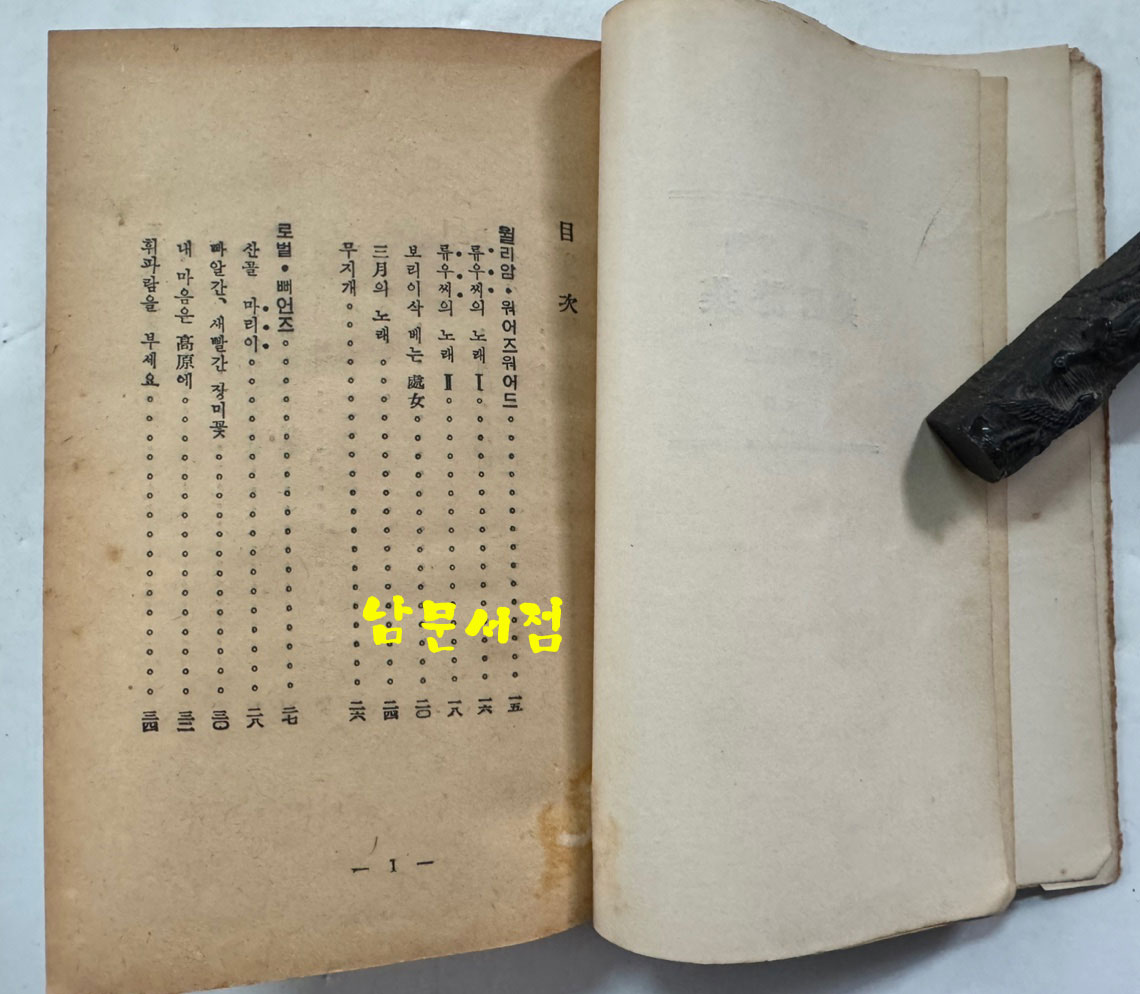 目次
월리암·워어즈워어드。。。。。。。。。。。。。。一五
류우씨의 노래 Ⅰ。。。。。。。。。。。。。。。一六
류우씨의 노래 Ⅱ。。。。。。。。。。。。。。。一八
보리이삭 베는 處女。。。。。。。。。。。。。。二〇
三月의 노래。。。。。。。。。。。。。。。。。二四
무지개。。。。。。。。。。。。。。。。。。。。二六
로벌·뻐언즈。。。。。。。。。。。。。。。。。。二七
산골 마리이。。。。。。。。。。。。。。。。。二八
빠알간, 새빨간 장미꽃。。。。。。。。。。。。。三〇
내 마음은 高原에。。。。。。。。。。。。。。。三二
휘파람을 부세요。。。。。。。。。。。。。。。三四
— 1 —
남문서점